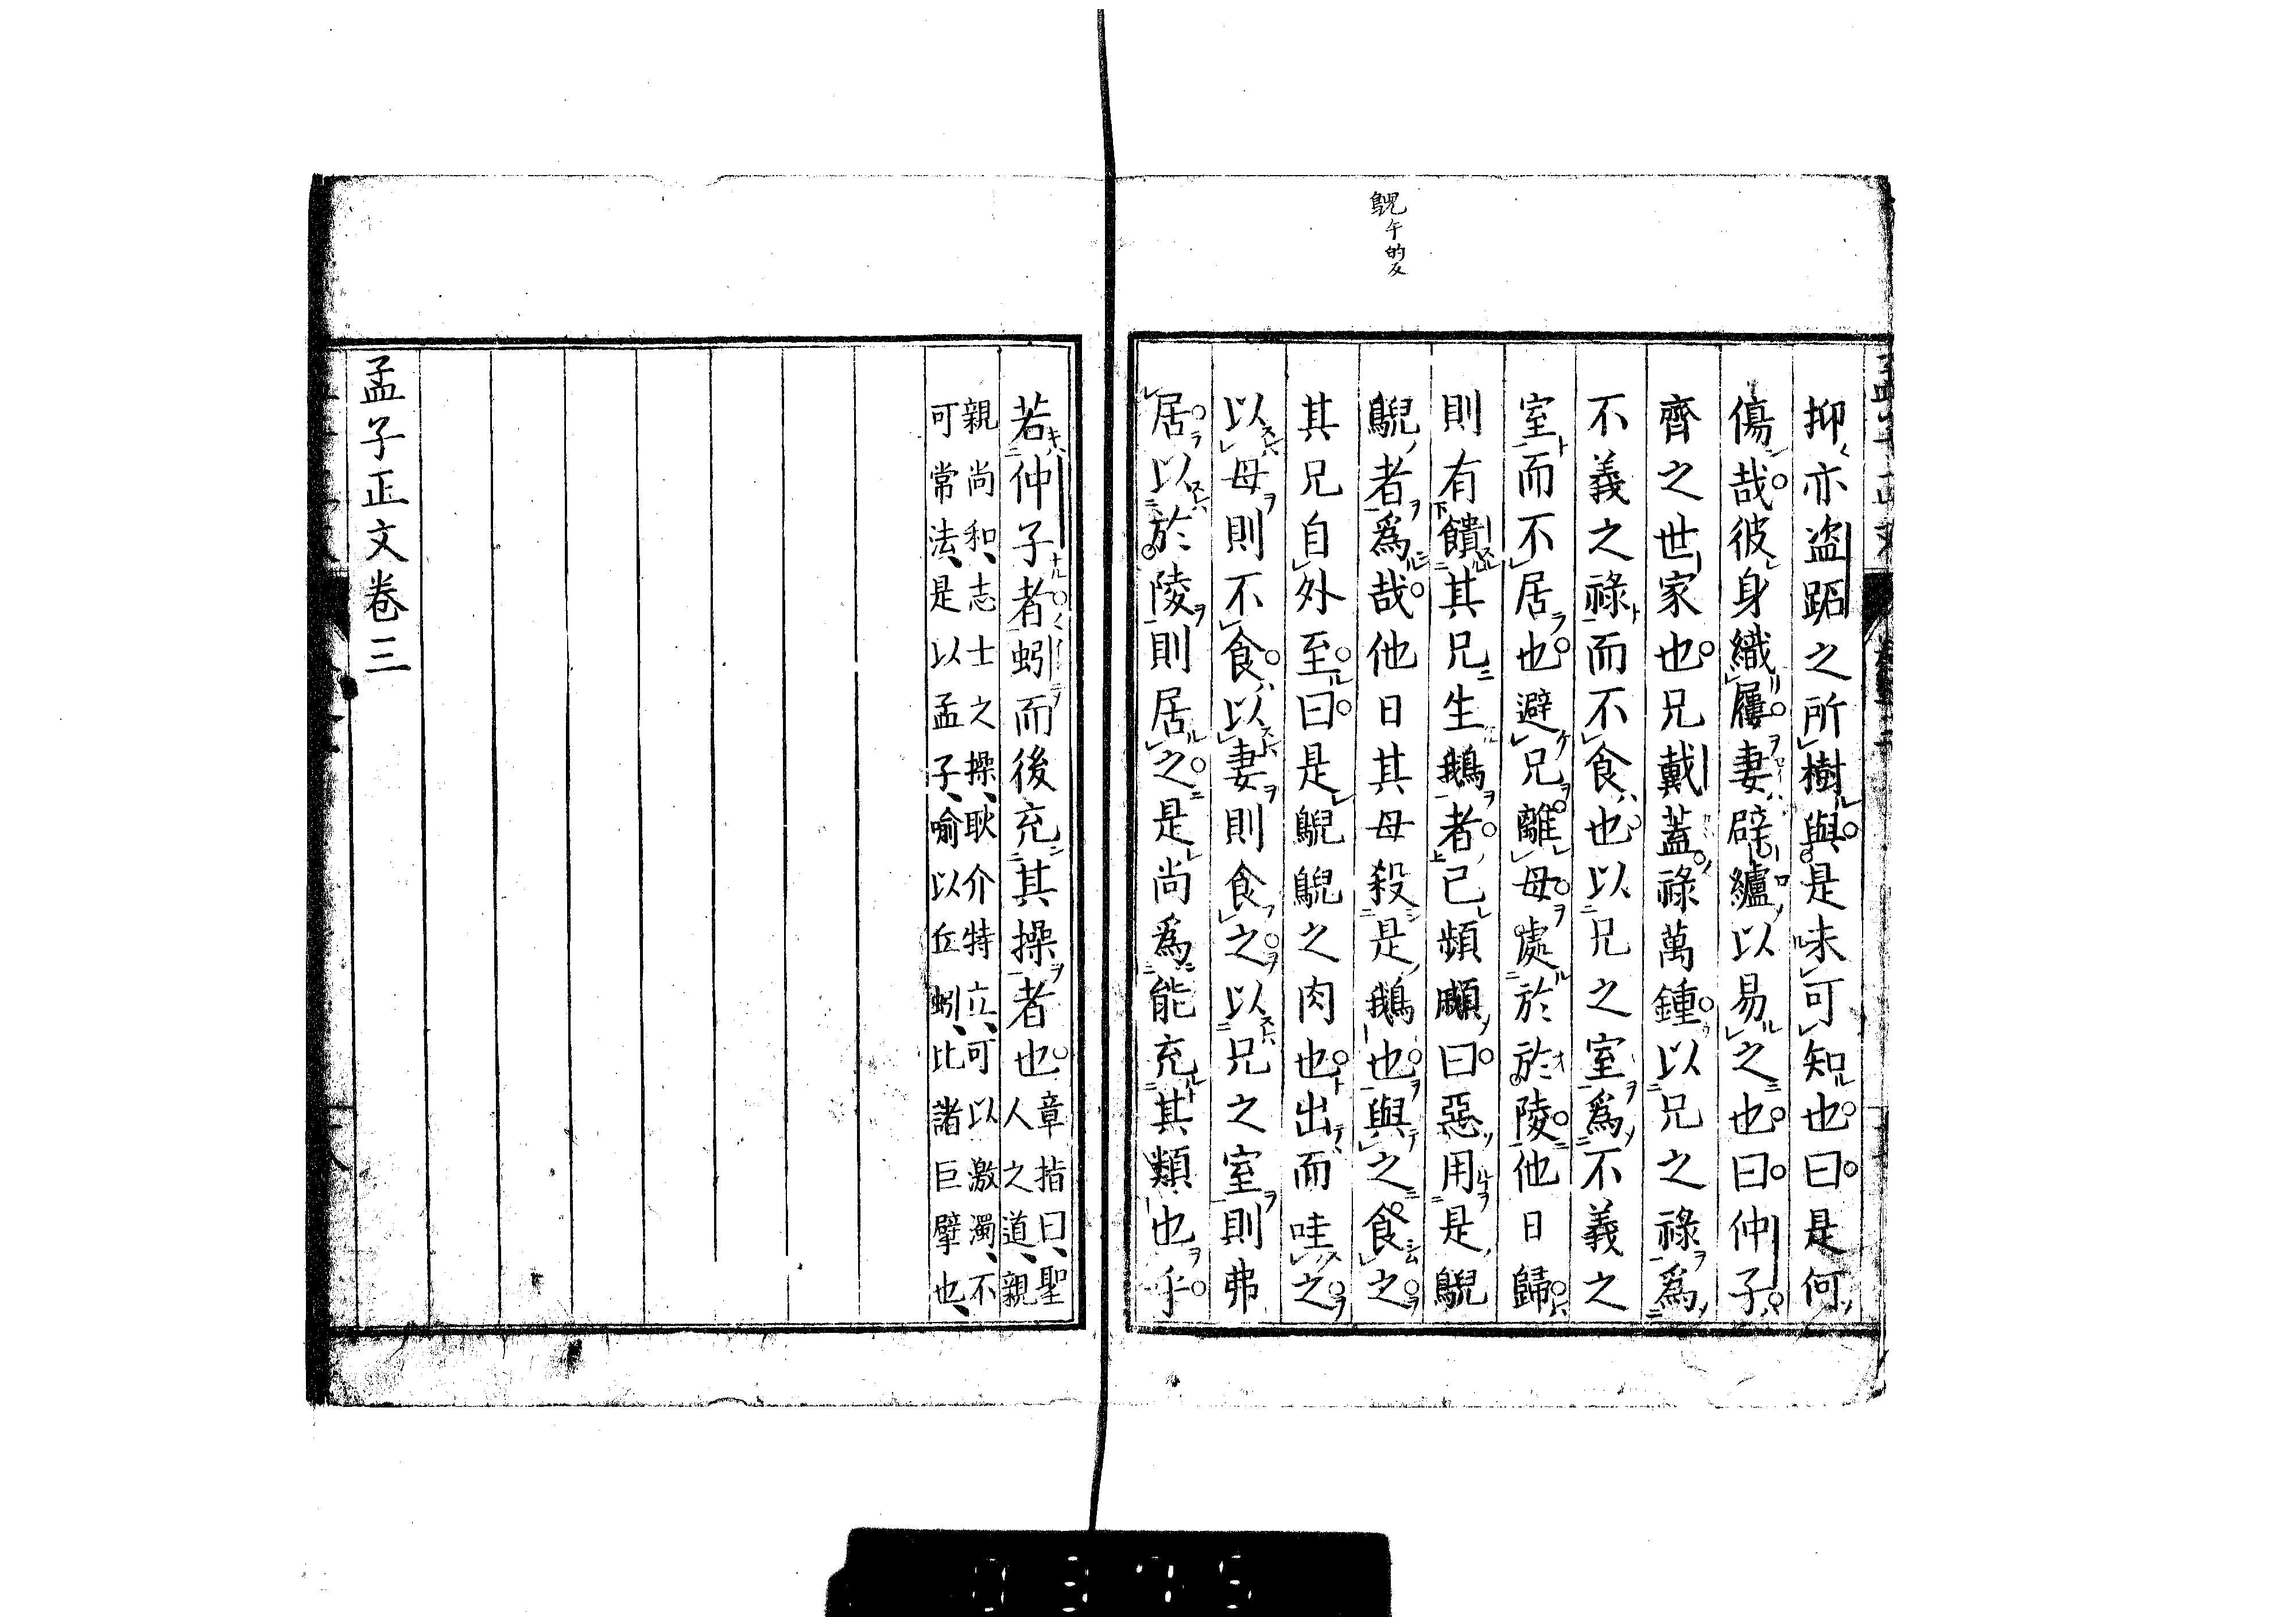 鶂午的反
抑亦盗跖之所樹與是未可知也曰是何
傷哉彼身織屨妻辟纑以易之也曰仲子
齊之世家也兄戴蓋祿萬鍾以兄之祿爲
不義之祿而不食也以兄之室爲不義之
室而不居也避兄離母處於於陵他日歸
則有饋其兄生鵝者己頻顣曰惡用是鶃
鶃者爲哉他日其母殺是鵝也與之食之
其兄自外至曰是鶃鶃之肉也出而哇之
以母則不食以妻則食之以兄之室則弗
居以於陵則居之是尚爲能充其類也乎
若仲子者蚓而後充其操者也
章指曰聖
人之道親
親尚和志士之操耿介特立可以激濁不
可常法是以孟子喻以丘蚓比諸巨擘也
孟子正文卷三